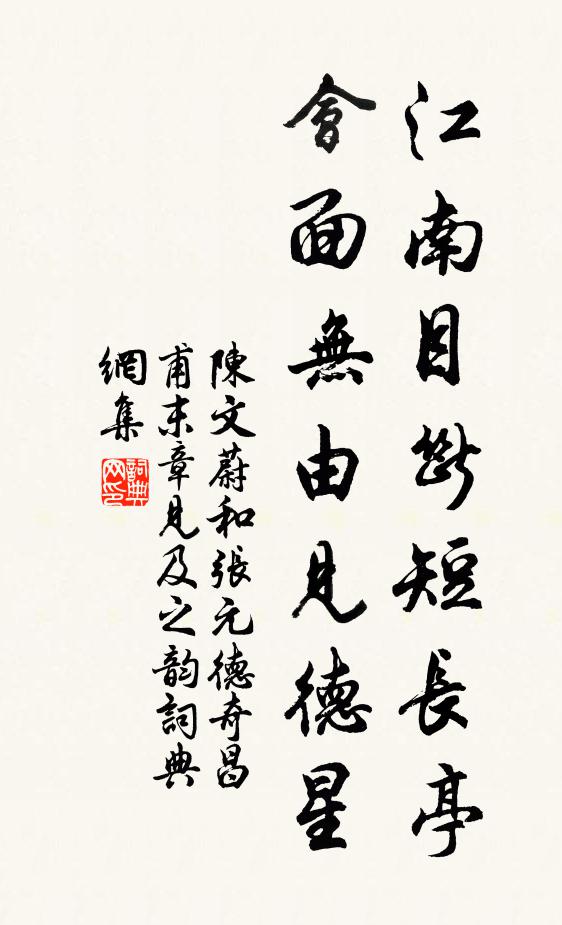 江南目斷短長亭
會面無由見德星
陳文蔚和張元德奇昌
甫末章見及之韵詞典
網集
詞典
网印